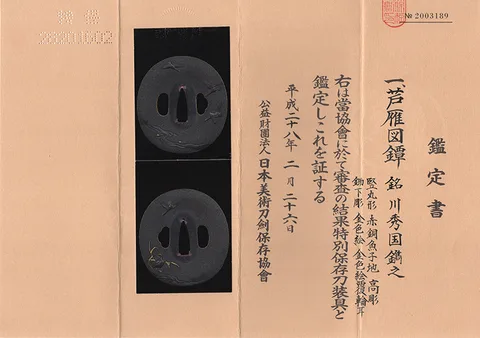 № 2003189
鑑定書
一、芦雁図鐔 銘 川秀国鐫之
竪丸形 赤銅魚子地 高彫
鋤下彫 金色絵 金色絵覆輪耳
右は當協會に於て審査の結果特別保存刀装具と
鑑定しこれを証する
平成二十八年 二月 二十六日
公益財團法人 日本美術刀剣保存協會